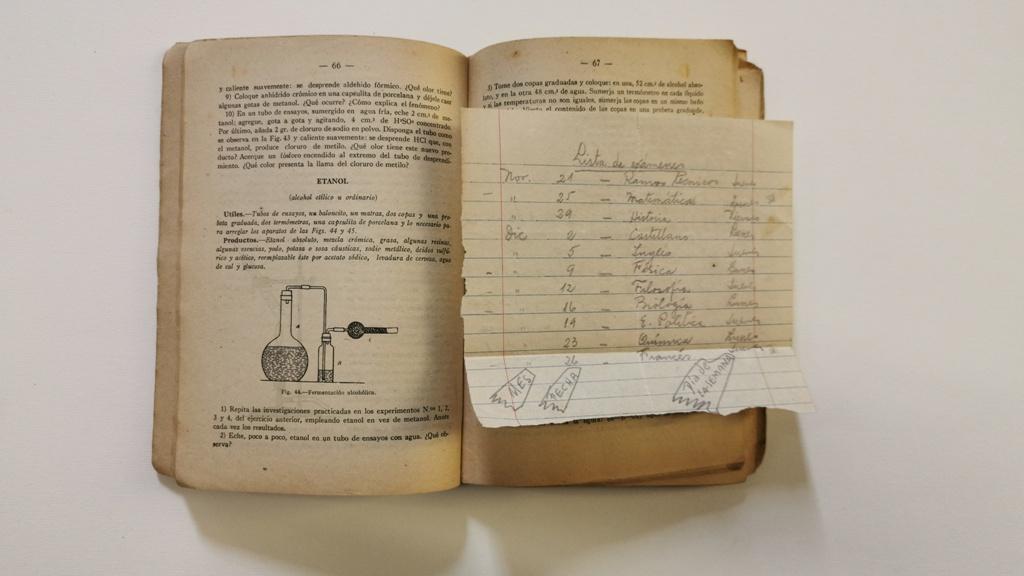 — 66 —
y caliente suavemente: se desprende aldehido fórmico. ¿Qué olor tiene?
9) Coloque anhídrido crómico en una capsulita de porcelana y déjele caer
algunas gotas de metanol. ¿Qué ocurre? ¿Cómo explica el fenómeno?
10) En un tubo de ensayos, sumergido en agua fría, eche 2 cm.³ de me-
tanol; agregue, gota a gota y agitando, 4 cm.³ de H²SO⁴ concentrado.
Por último, añada 2 gr. de cloruro de sodio en polvo. Disponga el tubo como
se observa en la Fig. 43 y caliente suavemente: se desprende HCl que, con
el metanol, produce cloruro de metilo. ¿Qué olor tiene este nuevo pro-
ducto? Acerque un fósforo encendido al extremo del tubo de desprendi-
miento. ¿Qué color presenta la llama del cloruro de metilo?
ETANOL
(alcohol etílico u ordinario)
Utiles.—Tubos de ensayos, un baloncito, un matraz, dos copas y una pro-
beta graduada, dos termómetros, una capsulita de porcelana y lo necesario pa-
ra arreglar los aparatos de las Figs. 44 y 45.
Productos.—Etanol absoluto, mezcla crómica, grasa, algunas resinas,
algunas esencias, yodo, potasa o sosa cáusticas, sodio metálico, ácidos sulfú-
rico y acético, reemplazable éste por acetato sódico, levadura de cerveza, agua
de cal y glucosa.
A
B
C
Fig. 44.—Fermentación alcohólica.
1) Repita las investigaciones practicadas en los experimentos N.os 1, 2,
3 y 4, del ejercicio anterior, empleando etanol en vez de metanol. Anote
cada vez los resultados.
2) Eche, poco a poco, etanol en un tubo de ensayos con agua. ¿Qué ob-
serva?
— 67 —
3) Tome dos copas graduadas y coloque: en una, 52 cm.³ de alcohol abso-
luto, y en la otra 48 cm.³ de agua. Sumerja un termómetro en cada líquido
y si las temperaturas no son iguales, sumerja las copas en un mismo baño
el contenido de las copas en una probeta graduada,
Lista de exámenes
Nov. 21 — Ramos Técnicos
" 25 — Matemáticas
" 29 — Historia
Dic 2 — Castellano
" 5 — Ingles
" 9 — Física
" 12 — Filosofía
" 16 — Biología
" 19 — E. Política
" 23 — Química
" 26 — Frances
MES
FECHA